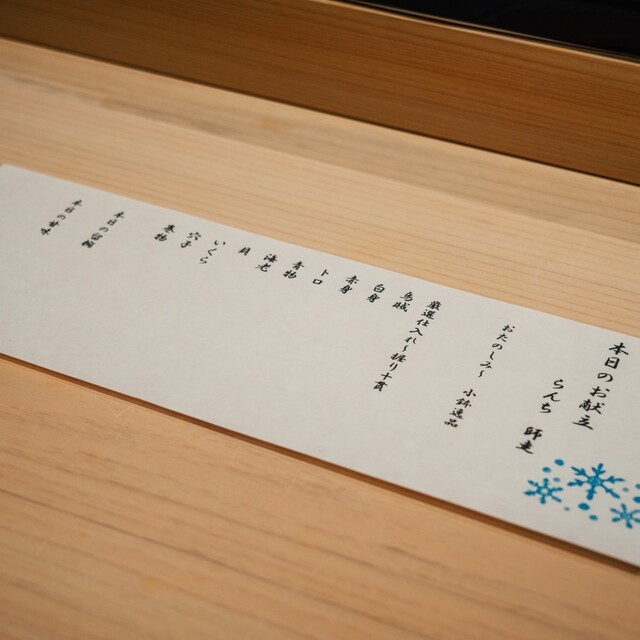 本日のお献立
らんち 師走
おたのしみ〜 小鉢逸品
厳選仕入れ〜握り十貫
烏賊
白身
赤身
トロ
青物
海老
貝
いくら
穴子
巻物
本日の留椀
本日の甘味